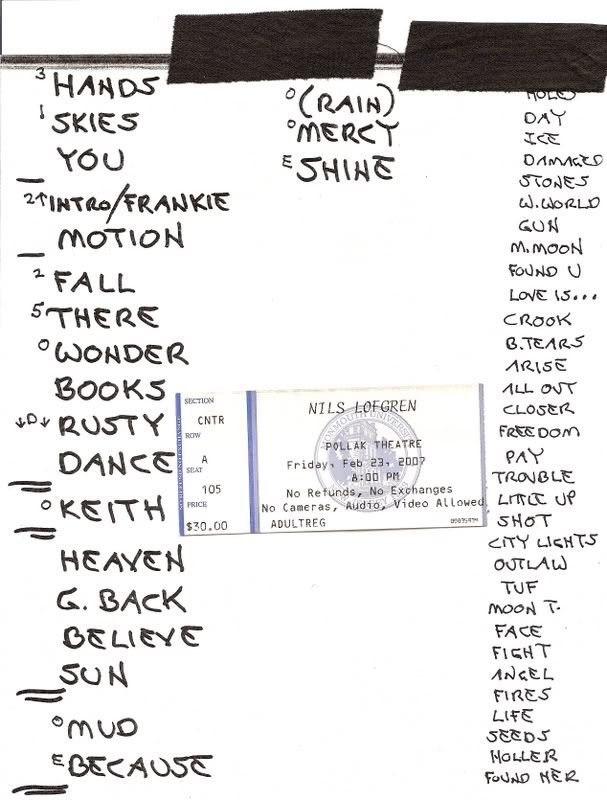 3 HANDS
1 SKIES
YOU
2↑ INTRO/FRANKIE
MOTION
2 FALL
5 THERE
0 WONDER
BOOKS
↓D↓ RUSTY
DANCE
0 KEITH
HEAVEN
G. BACK
BELIEVE
SUN
0 MUD
E BECAUSE
0 (RAIN)
0 MERCY
E SHINE
SECTION
CNTR
ROW
A
SEAT
105
PRICE
$30.00
NILS LOFGREN
POLLAK THEATRE
Friday, Feb 23, 2007
8:00 PM
No Refunds, No Exchanges
No Cameras, Audio, Video Allowed
ADULTREG
HOLES
DAY
ICE
DAMAGED
STONES
W.WORLD
GUN
M.MOON
FOUND U
LOVE IS...
CROOK
B.TEARS
ARISE
ALL OUT
CLOSER
FREEDOM
PAY
TROUBLE
LITTLE UP
SHOT
CITY LIGHTS
OUTLAW
TUF
MOON T.
FACE
FIGHT
ANGEL
FIRES
LIFE
SEEDS
HOLLER
FOUND HER